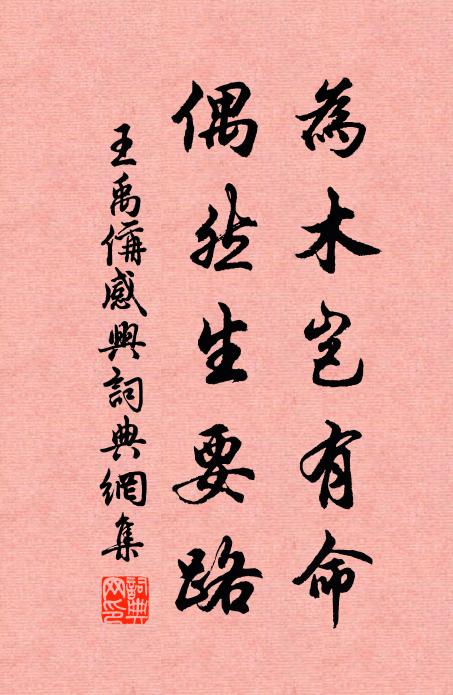 為木豈有命
偶然生要路
王禹偁感興詞典網集
詞典網印